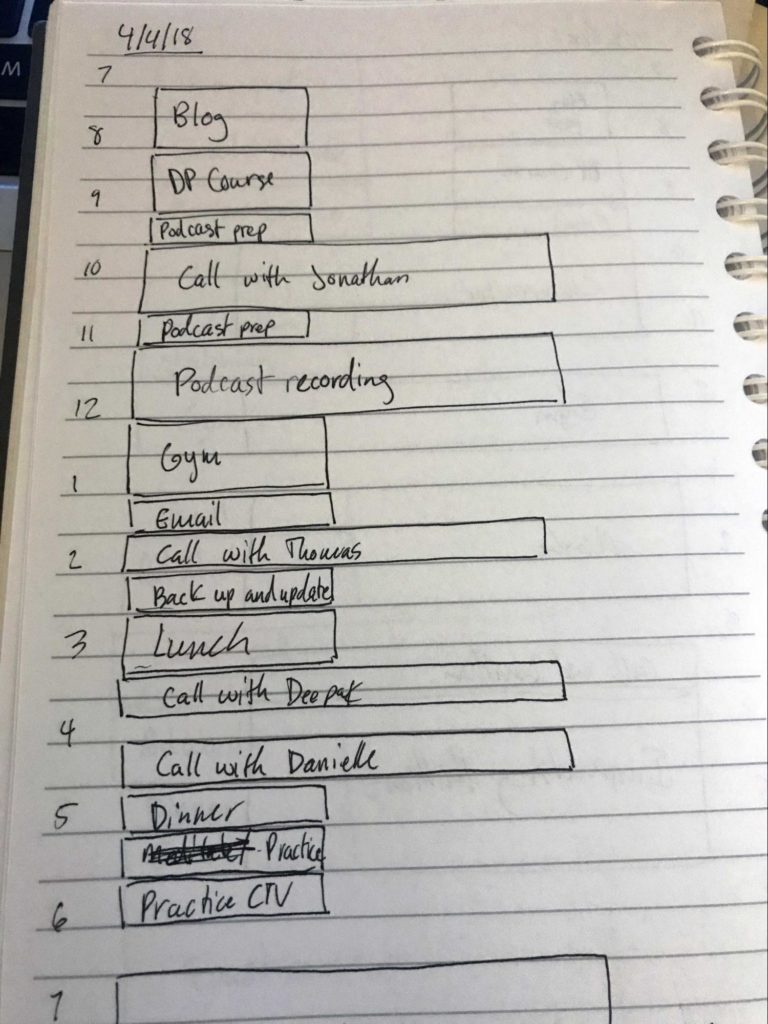 W
4/4/18
7
Blog
8
DP Course
9
Podcast prep
10
Call with Jonathan
11
Podcast prep
Podcast recording
12
Gym
1
Email
2
Call with Thomas
Back up and update
3
Lunch
Call with Deepak
4
Call with Danielle
5
Dinner
Practice
6
Practice CTV
7